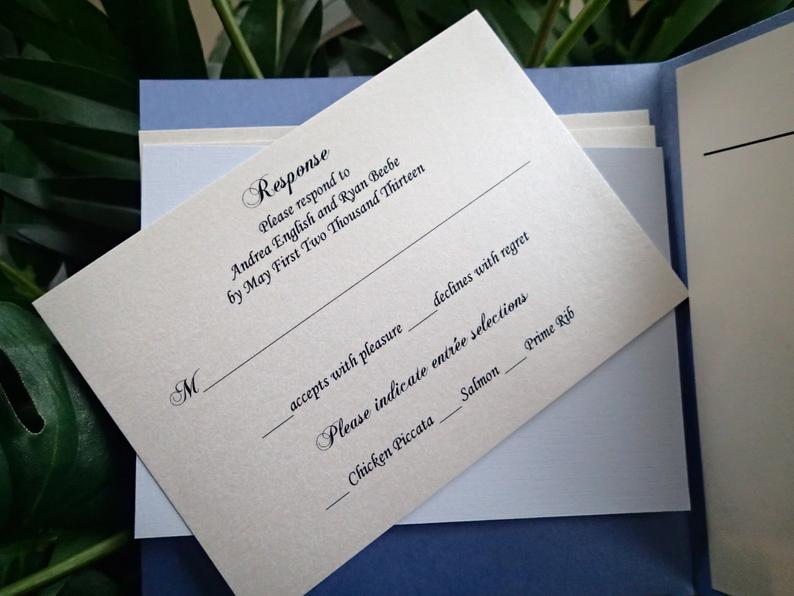 Response
Please respond to
Andrea English and Ryan Beebe
by May First Two Thousand Thirteen
M____________________
____accepts with pleasure ____declines with regret
Please indicate entrée selections
____Chicken Piccata ____Salmon ____Prime Rib